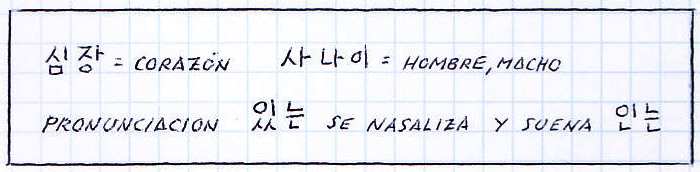 심장 = CORAZÓN 사나이 = HOMBRE, MACHO
PRONUNCIACION 있는 SE NASALIZA Y SUENA 인는